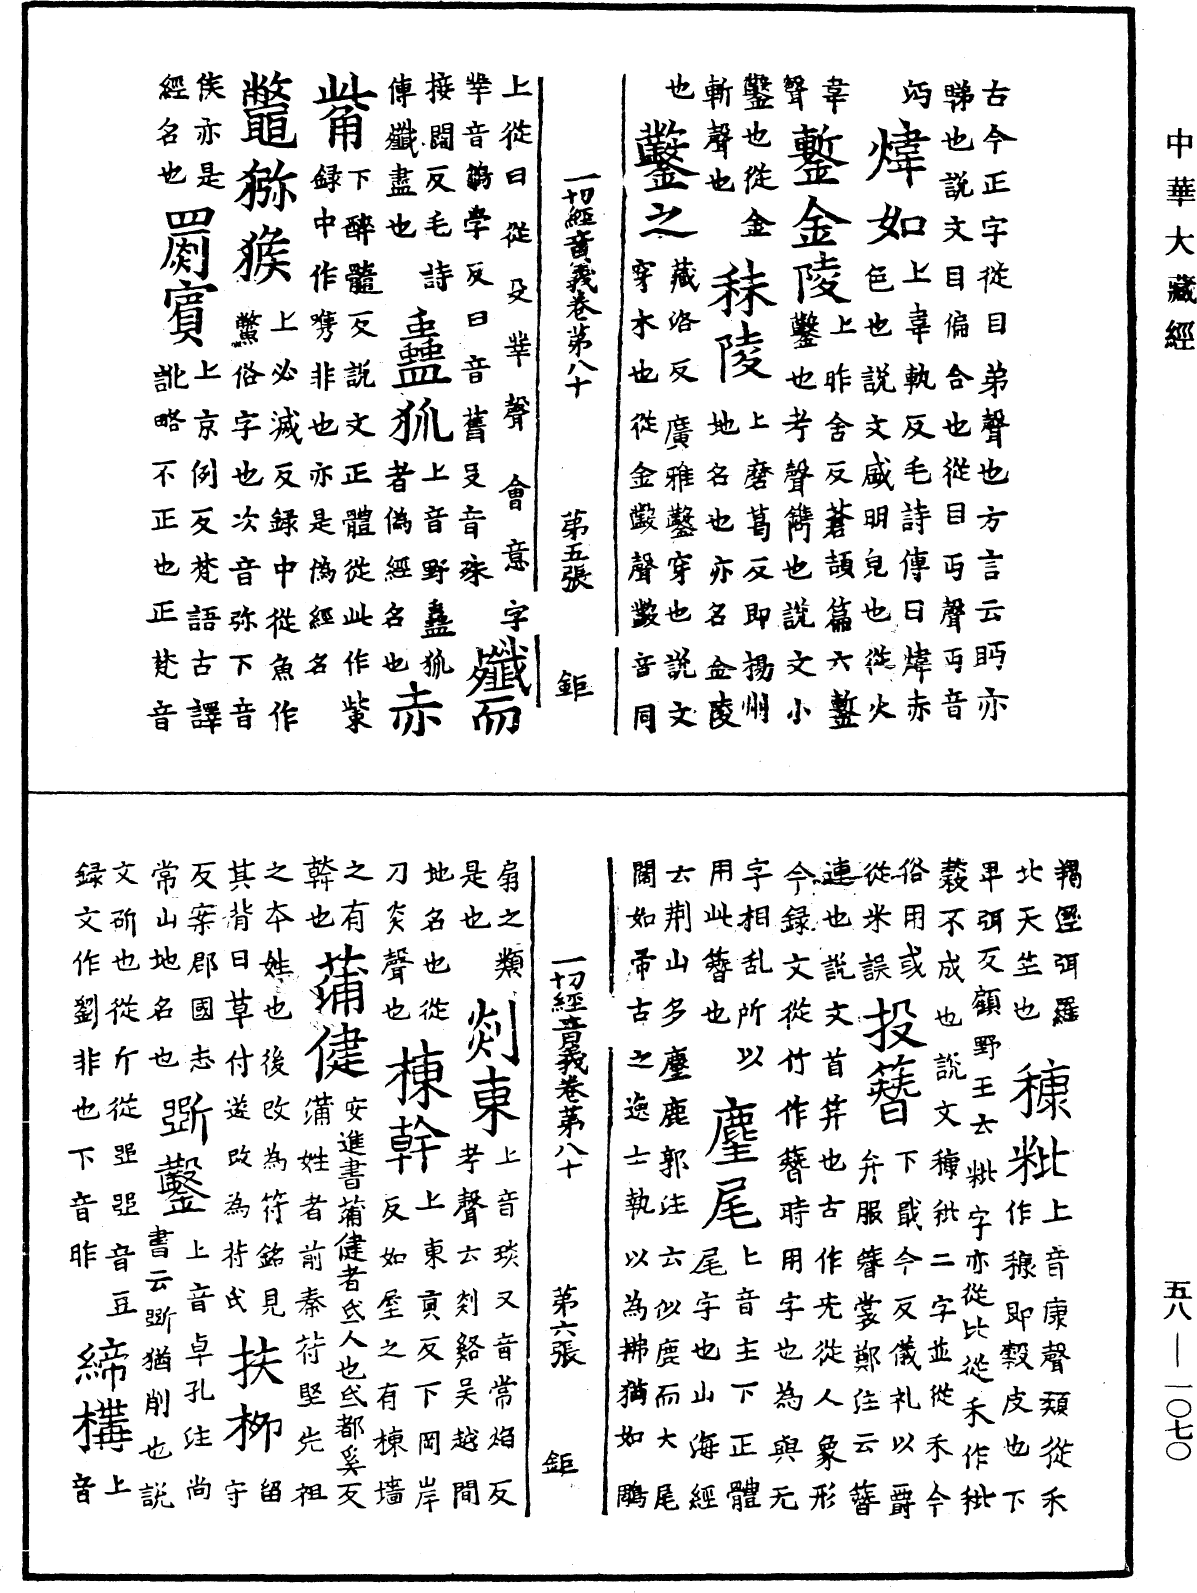 中華大藏經
古今正字從目弟聲也方言云眄亦
睇也說文目偏合也從目丏聲丏音
沔 煒如 上韋軌反毛詩傳曰煒赤
色也說文盛明皃也從火
韋
聲 鏨金陵 上昨舍反蒼頡篇云鏨
鑿也考聲鐫也說文小
鑿也從金
斬聲也 秣陵 上磨葛反即揚州
地名也亦名金陵
也 鑿之 藏洛反廣雅鑿穿也說文
穿木也從金𣫞聲𣫞音同
一切經音義卷第八十 第五張 鉅
上從日從殳丵聲會意字
丵音鸀學反日音舊殳音殊 殲而
接閻反毛詩
傳殲盡也 蠱狐 上音野蠱狐
者偽經名也 赤
觜 下醉髓反說文正體從此作觜
録中作嘴非也亦是偽經名
鼈獼猴 上必滅反録中從魚作
鱉俗字也次音弥下音
侯亦是
經名也 罽賓 上京例反梵語古譯
訛略不正也正梵音
羯溼弭羅
北天竺也 穅粃 上音康聲類從禾
作穅即穀皮也下
卑弭反顧野王云粃字亦從比從禾作秕
穀不成也說文穅秕二字並從禾今
俗用或
從米誤 投簪 下戢今反儀礼以爵
弁服簪裳鄭注云簪
連也說文首笄也古作兂從人象形
今録文從竹作簪時用字也為與无
字相乱所以
用此簪也 麈尾 上音主下正體
尾字也山海經
云荊山多麈鹿郭注云似鹿而大尾
闊如帚古之逸士執以為拂猶如鵰
一切經音義卷第八十 第六張 鉅
扇之類
是也 剡東 上音琰又音常焰反
考聲云剡谿吳越間
地名也從
刀炎聲也 棟幹 上東貢反下岡岸
反如屋之有棟墻
之有
幹也 蒲健 安進書蒲健者氐人也氐都奚反
蒲姓者前秦苻堅先祖
之本姓也後改為苻銘見留
其背曰草付遂改為苻氏 扶柳 守
反案郡國志
常山地名也 斲鑿 上音卓孔注尚
書云斲猶削也說
文斫也從斤從𠁁𠁁音豆
録文作劉非也下音昨 締構 上
音
五八—一〇七〇